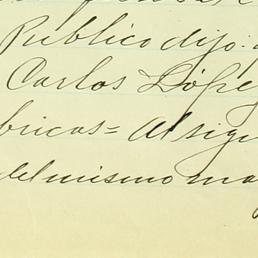 Público dijo:
Carlos López
bricas = Al sig
del mismo ma